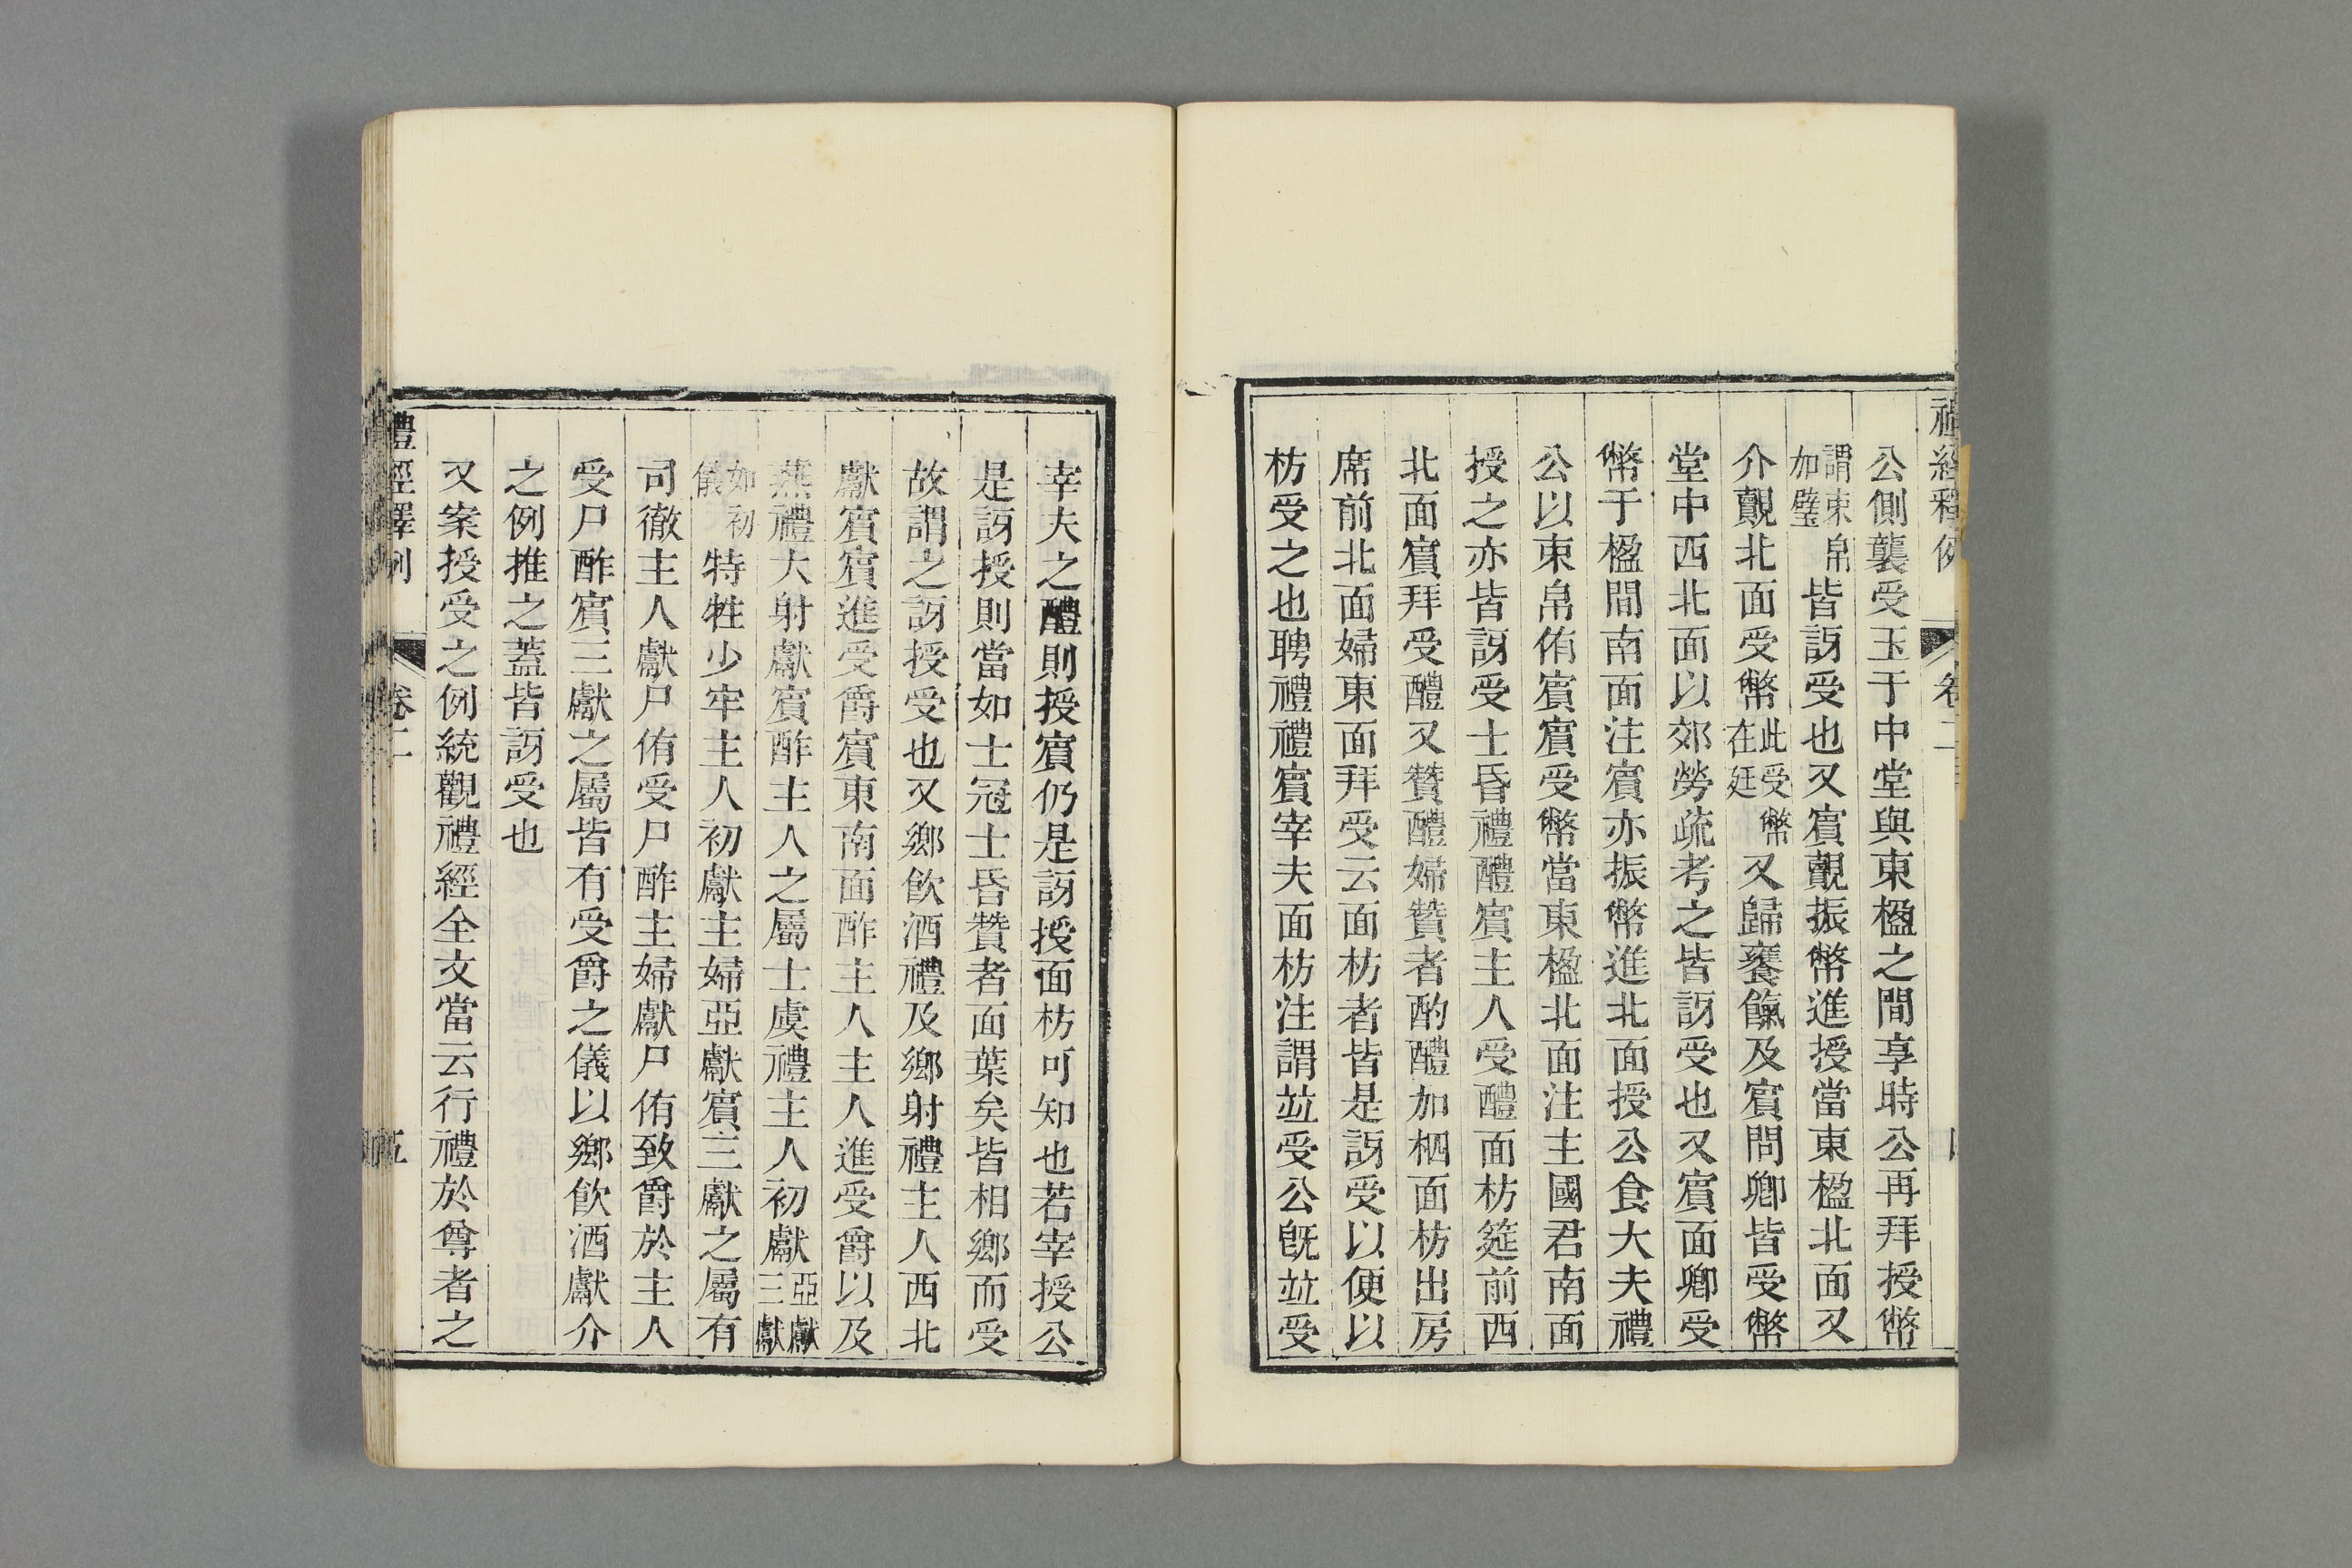 禮經釋例 卷二
公側襲受玉于中堂與東楹之間享時公再拜授幣
謂束帛加璧皆訝受也又賓覿振幣進授當東楹北面又
介覿北面受幣此受幣在廷又歸饔餼及賓問卿皆受幣
堂中西北面以郊勞疏考之皆訝受也又賓面卿受
幣于楹間南面注賓亦振幣進北面授公食大夫禮
公以束帛侑賓賓受幣當東楹北面注主國君南面
授之亦皆訝受士昏禮醴賓主人受醴面枋筵前西
北面賓拜受醴又贊醴婦贊者酌醴加柶面枋出房
席前北面婦東面拜受云面枋者皆是訝受以便以
枋受之也聘禮禮賓宰夫面枋注謂竝受公旣竝受
宰夫之醴則授賓仍是訝授面枋可知也若宰授公
是訝授則當如士冠士昏贊者面葉矣皆相鄉而受
故謂之訝授受也又鄉飲酒禮及鄉射禮主人西北
獻賓賓進受爵賓東南面酢主人主人進受爵以及
燕禮大射獻賓酢主人之屬士虞禮主人初獻亞獻三獻
如初儀特牲少牢主人初獻主婦亞獻賓三獻之屬有
司徹主人獻尸侑受尸酢主婦獻尸侑致爵於主人
受尸酢賓三獻之屬皆有受爵之儀以鄉飲酒獻介
之例推之蓋皆訝受也
又案授受之例統觀禮經全文當云行禮於尊者之
禮經釋例 卷二 五